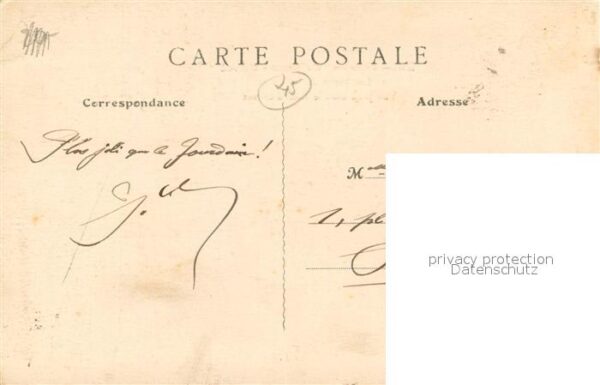 CARTE POSTALE
45
Correspondance
Adresse
Plus joli que le Jourdain !
Melle
1, pl
privacy protection
Datenschutz